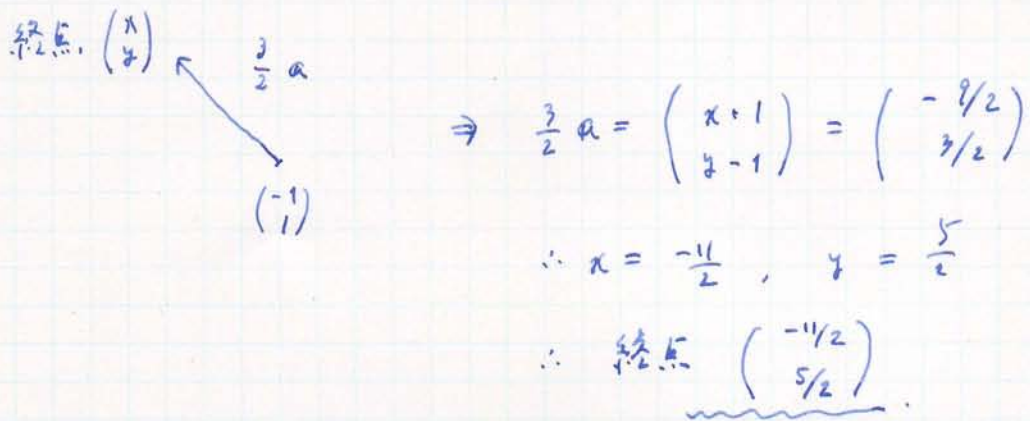 終点 (x y) 3/2 a
(-1 1)
⇒ 3/2 a = (x+1 y-1) = (-9/2 3/2)
∴ x = -11/2 , y = 5/2
∴ 終点 (-11/2 5/2) .